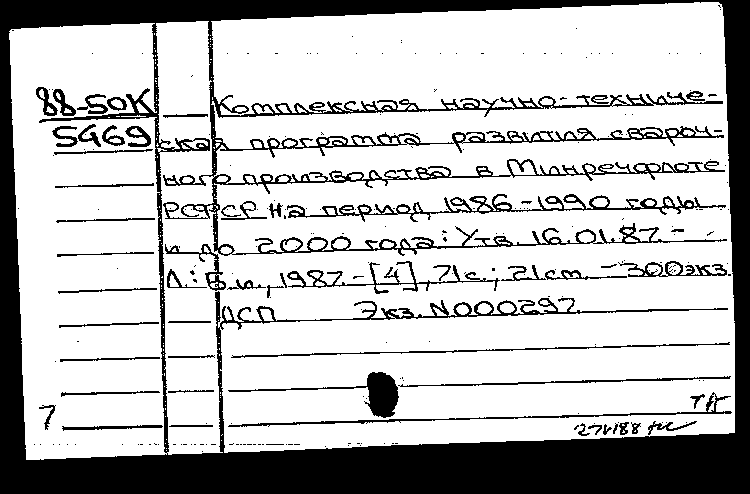 88-50К Комплексная научно-техниче-
5469 ская программа развития свароч-
ного производства в Минречфлоте
РСФСР на период 1986-1990 годы
и до 2000 года: Утв. 16.01.87. -
Л.: Б.и., 1987. - [4], 71с.; 21см. - 300экз.
ДСП Экз. N000297
7